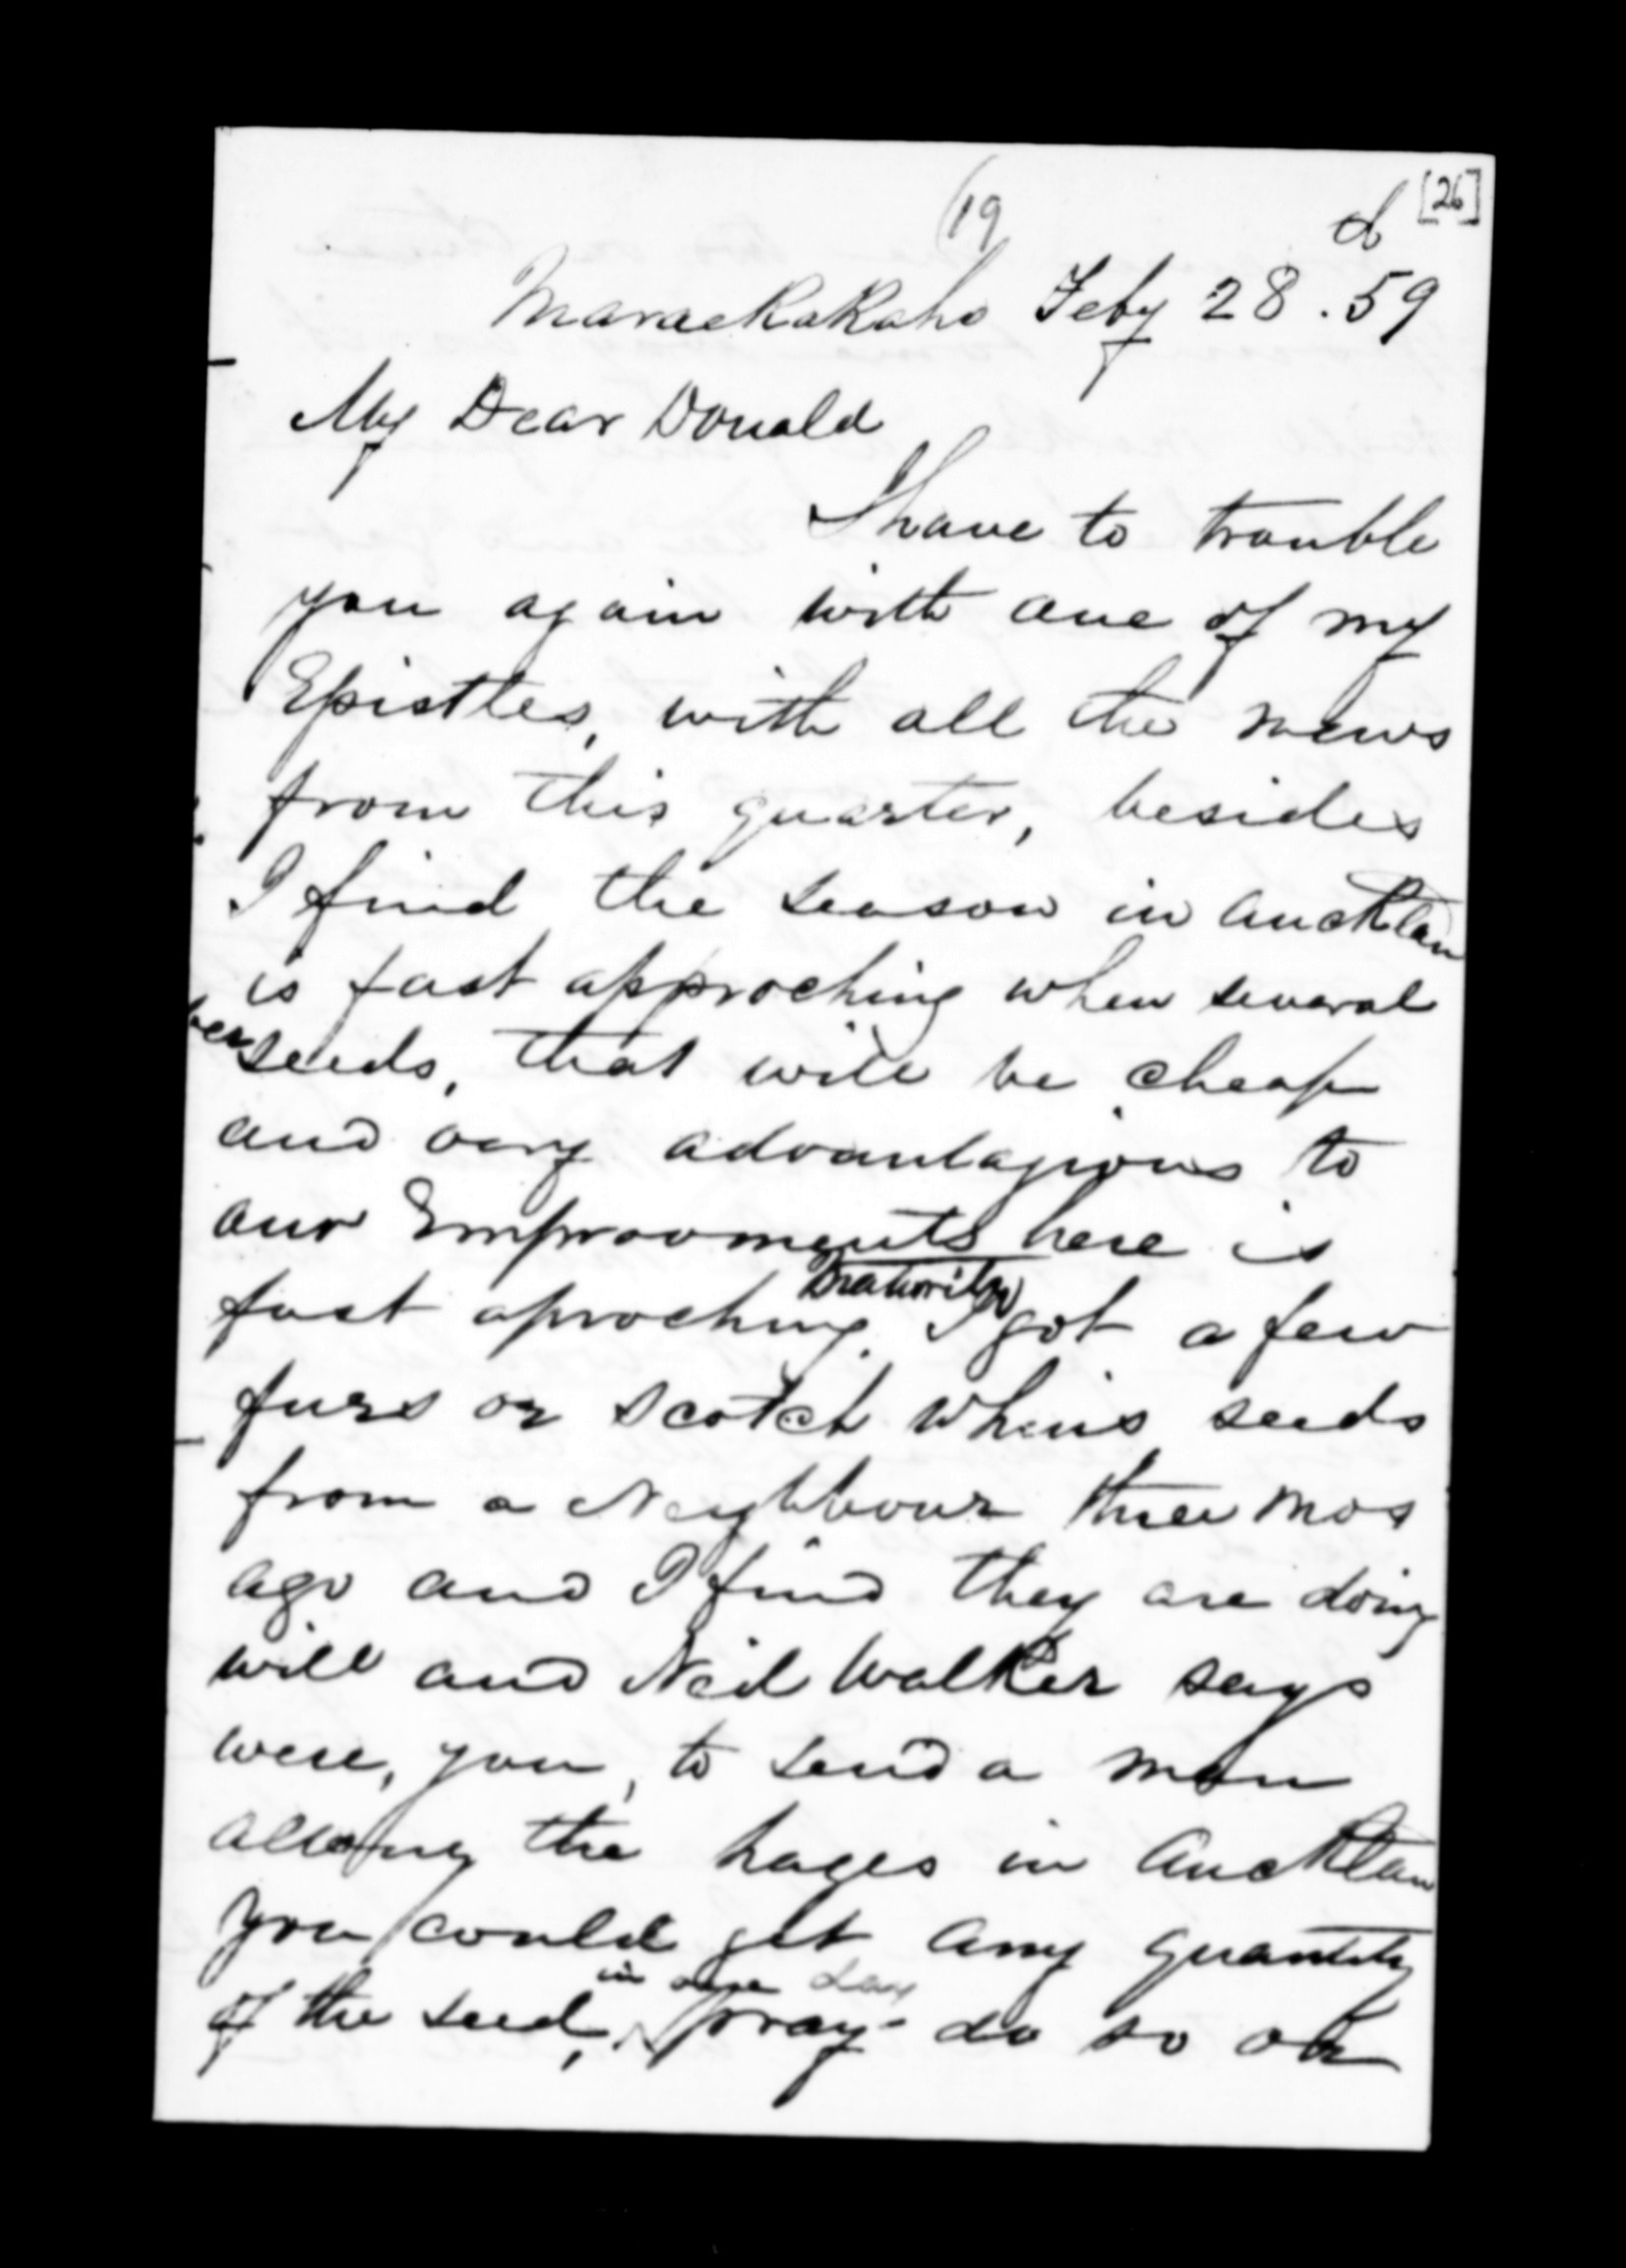 (19
[26]
Maraekakaho Feby 28. 59
My Dear Donald
I have to trouble
you again with one of my
Epistles, with all the news
from this quarter, besides
I find the season in Aucklan
is fast approching when several
seeds, that will be cheap
and very advantagious to
our Emproovments here is
fast aproching maturity I got a few
furs or scotch whins seeds
from a Neighbour three mos
ago and I find they are doing
well and Neil Walker says
were, you, to send a man
allong the hages in Aucklan
you could get any quantity
of the seed, in one day pray do so or